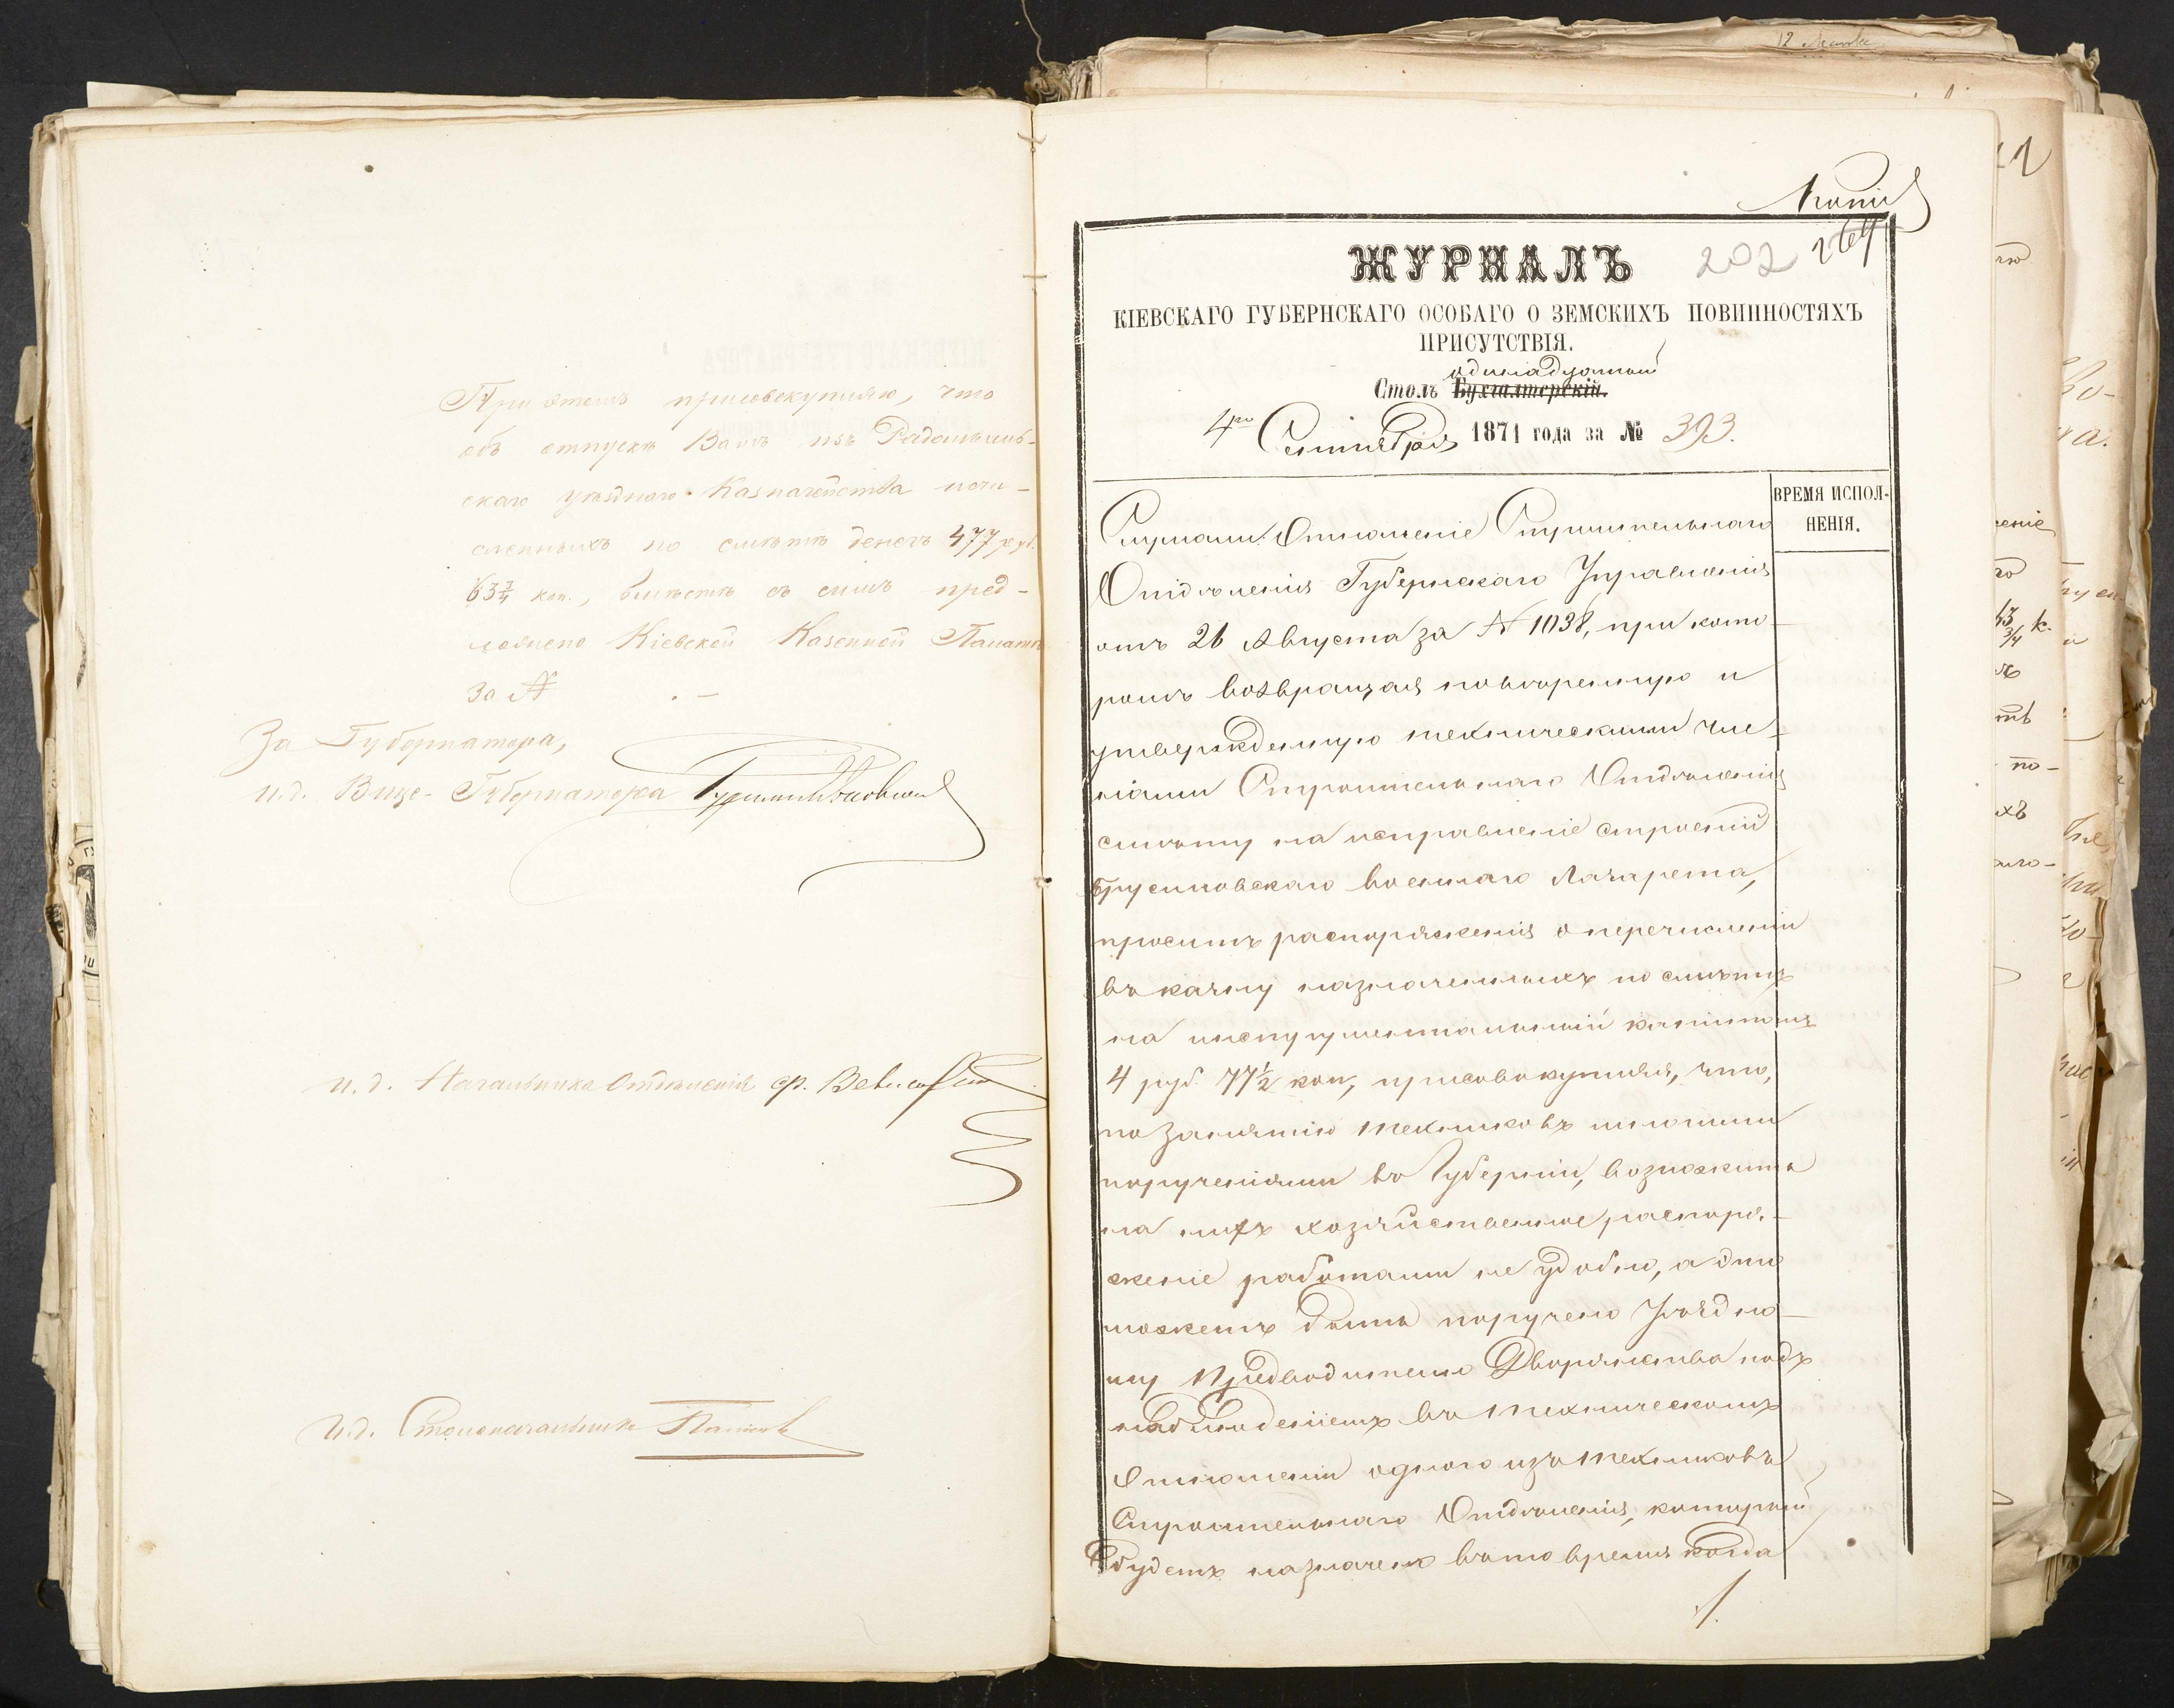 При этомъ присовокупляю, что
объ отпускѣ Вамъ изъ Радомысль-
скаго уѣзднаго Казначейства исчи-
сленныхъ по смѣтѣ денегъ 477 руб.
63¾ коп., вмѣстѣ съ симъ пред-
ложено Кіевской Казенной Палатѣ
за №
За Губернатора,
и. д. Вице-Губернатора
и. д. Начальника Отдѣленія
И. д. Столоначальника
12
Копія
ЖУРНАЛЪ 202 264
КІЕВСКАГО ГУБЕРНСКАГО ОСОБАГО О ЗЕМСКИХЪ ПОВИННОСТЯХЪ
ПРИСУТСТВІЯ.
одинадцатый
Столъ Бухгалтерскій.
4го Сентября 1871 года за № 393.
ВРЕМЯ ИСПОЛ-
НЕНІЯ.
Слушали: Отношеніе Строительнаго
Отдѣленія Губернскаго Управленія
отъ 26 Августа за № 1038, при кото-
ромъ возвращая повѣренную и
утвержденную техническими чле-
нами Строительнаго Отдѣленія
смѣту на исправленіе строеній
Брусиловскаго военнаго Лазарета,
проситъ распоряженія о перечисленіи
въ казну назначенныхъ по смѣтѣ
на инструментальный капиталъ
4 руб. 77½ коп, присовокупляя, что,
по занятію техниковъ иными
порученіями въ Губерніи, возложить
на нихъ хозяйственное распоря-
женіе работами не удобно, а это
можетъ быть поручено Уѣздно-
му Предводителю Дворянства подъ
наблюденіемъ въ техническомъ
отношеніи одного изъ техниковъ
Строительнаго Отдѣленія, который
будетъ назначенъ въ то время когда